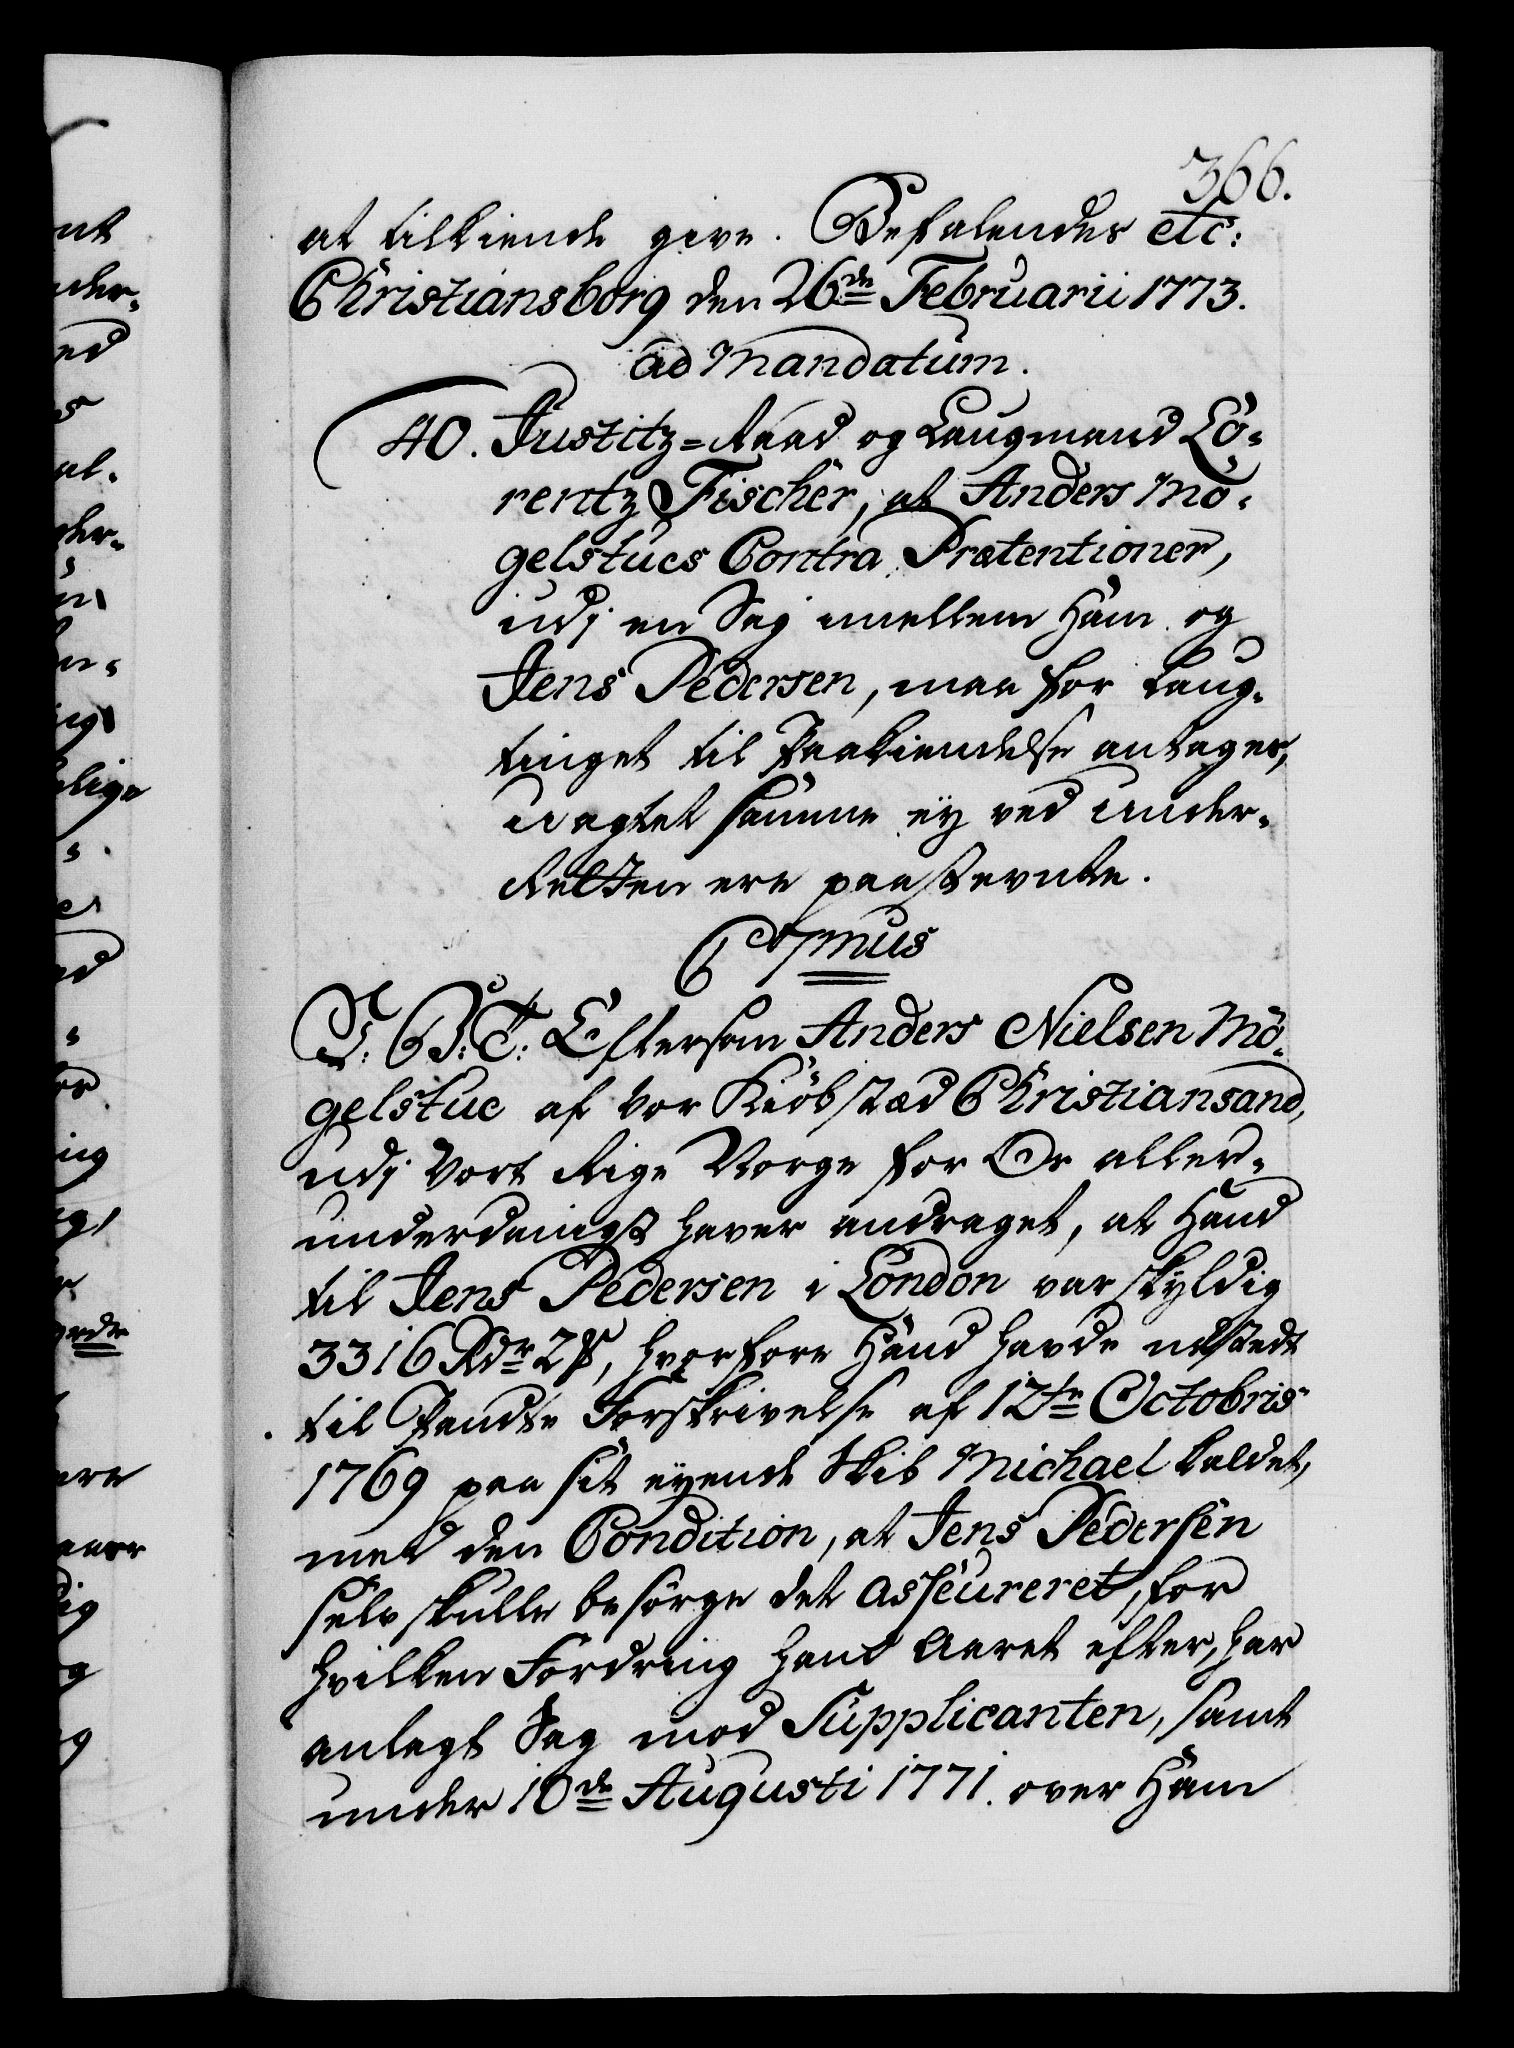 366.
at tilkiende give. Befalendes etc:
Christiansborg den 26de Februarii 1773.
ad Mandatum.
40. Justitz=Raad og Laugmand Lo=
rentz Fischer, at Anders Mö=
gelstues Contra Prætentioner,
udj en Sag imellem Ham og
Jens Pedersen, maa for Laug=
tinget til Paakiendelse antages,
uagtet samme ey ved Under=
Retten ere paastevnte.
C 7mus
G: B: T: Eftersom Anders Nielsen Mö=
gelstue af vor Kiöbstæd Christiansand,
udj Vort Rige Norge for Os aller=
underdanigst haver andraget, at Hand
til Jens Pedersen i London var skyldig
3316 Rdr 2 s, hvorfore Hand havde udstedt
til Pandte Forskrivelse af 12te Octobris
1769 paa sit eyende Skib Michael kaldet,
med den Condition, at Jens Pedersen
selv skulle besörge det asseureret, for
hvilken Fordring hand Aaret efter, har
anlagt Sag mod Supplicanten, samt
under 10de Augusti 1771. over Ham